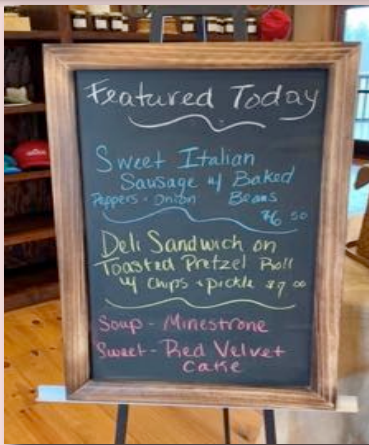 Featured Today
Sweet Italian
Sausage w/ Baked
Peppers + Onion Beans
$6 50
Deli Sandwich on
Toasted Pretzel Roll
w/ Chips + pickle $9 00
Soup - Minestrone
Sweet - Red Velvet
Cake